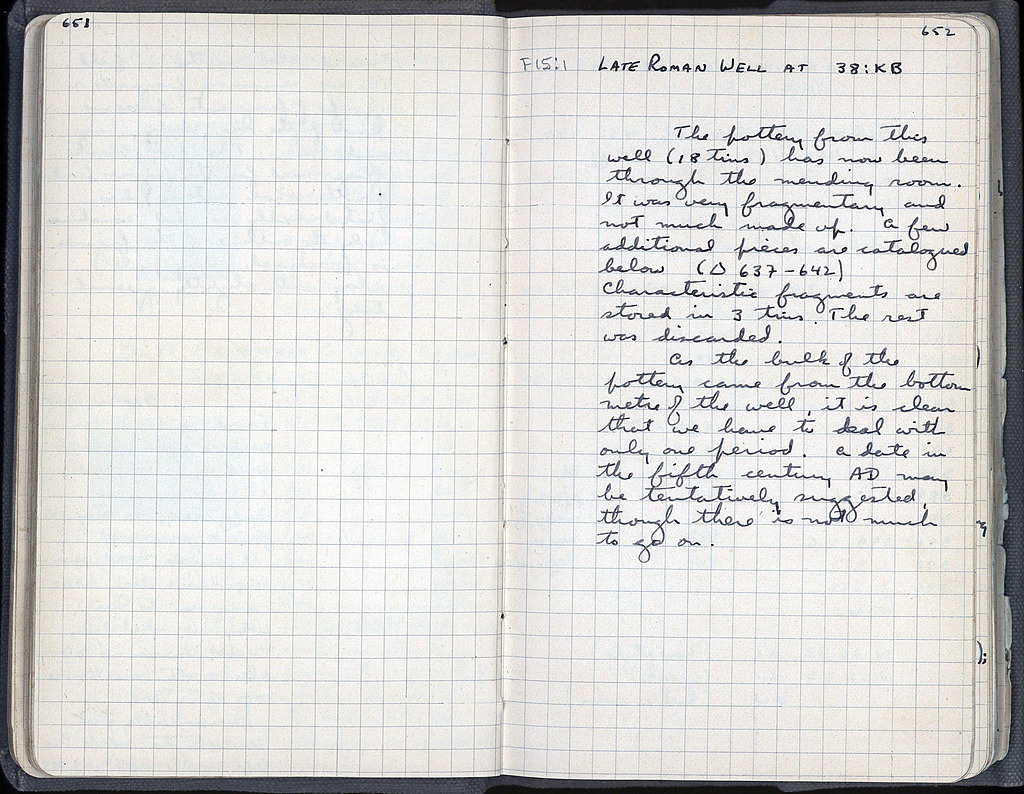 651
652
F15:1 LATE ROMAN WELL AT 38:KB
The pottery from this
well (18 tins) has now been
through the mending room.
It was very fragmentary and
not much made up. A few
additional pieces are catalogued
below (Δ 637-642)
Characteristic fragments are
stored in 3 tins. The rest
was discarded.
As the bulk of the
pottery came from the bottom
metre of the well, it is clear
that we have to deal with
only one period. A date in
the fifth century AD may
be tentatively suggested,
though there is not much
to go on.